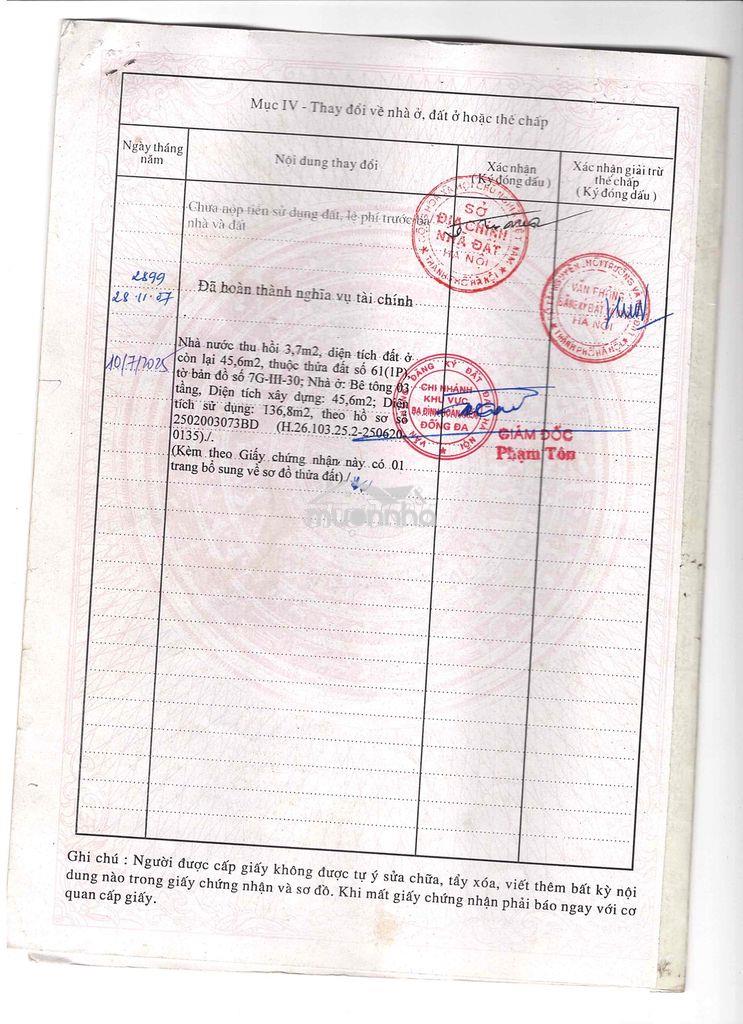 Mục IV - Thay đổi về nhà ở, đất ở hoặc thế chấp
Ngày tháng năm
Nội dung thay đổi
Xác nhận
( Ký đóng dấu )
Xác nhận giải trừ thế chấp
( Ký đóng dấu )
Chưa nộp tiền sử dụng đất, lệ phí trước bạ
nhà và đất
SỞ
ĐỊA CHÍNH
NHÀ ĐẤT
HÀ NỘI
THÀNH PHỐ HÀ NỘI
2899
28.11.07
Đã hoàn thành nghĩa vụ tài chính
VĂN PHÒNG
ĐĂNG KÝ ĐẤT
HÀ NỘI
THÀNH PHỐ HÀ NỘI
10/7/2025
Nhà nước thu hồi 3,7m2, diện tích đất ở
còn lại 45,6m2, thuộc thửa đất số 61(1P)
tờ bản đồ số 7G-III-30; Nhà ở: Bê tông 03
tầng, Diện tích xây dựng: 45,6m2; Diện
tích sử dụng: 136,8m2, theo hồ sơ số
2502003073BD (H.26.103.25.2-250620-
0135)./.
(Kèm theo Giấy chứng nhận này có 01
trang bổ sung về sơ đồ thửa đất)./.
CHI NHÁNH
KHU VỰC
ĐỐNG ĐA
GIÁM ĐỐC
Phạm Tôn
muonnha
Ghi chú : Người được cấp giấy không được tự ý sửa chữa, tẩy xóa, viết thêm bất kỳ nội
dung nào trong giấy chứng nhận và sơ đồ. Khi mất giấy chứng nhận phải báo ngay với cơ
quan cấp giấy.